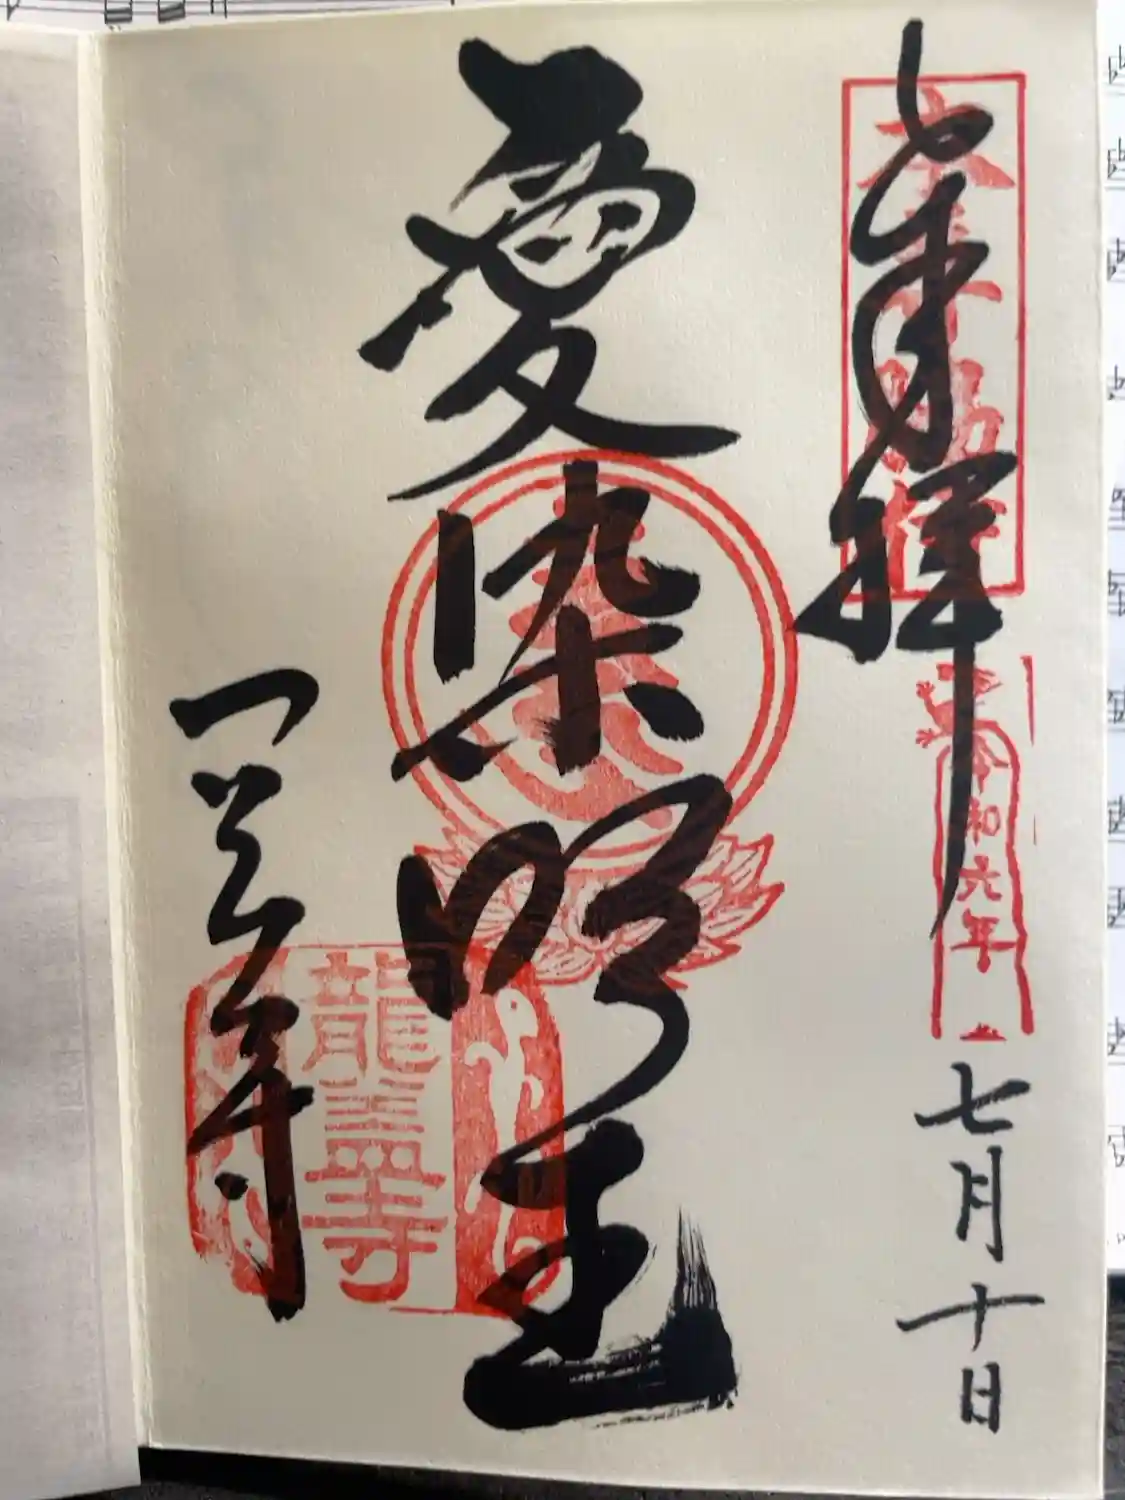 奉拝
令和六年
七月十日
愛染明王
龍蓋寺
龍蓋寺